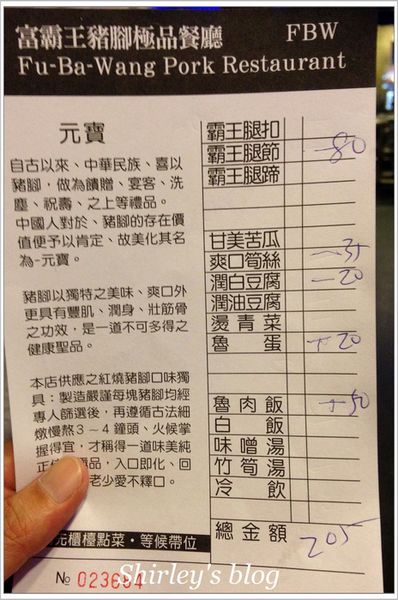 富霸王豬腳極品餐廳 FBW
Fu-Ba-Wang Pork Restaurant
元寶
自古以來、中華民族、喜以
豬腳，做為饋贈、宴客、洗
塵、祝壽、之上等禮品。
中國人對於、豬腳的存在價
值便予以肯定、故美化其名
為-元寶。
豬腳以獨特之美味、爽口外
更具有豐肌、潤身、壯筋骨
之功效，是一道不可多得之
健康聖品。
本店供應之紅燒豬腳口味獨
具：製造嚴謹每塊豬腳均經
專人篩選後，再遵循古法細
燉慢熬3～4鐘頭、火候掌
握得宜，才稱得一道味美純
正佳 品，入口即化、回
老少愛不釋口。
元櫃檯點菜・等候帶位
№ 023684
霸王腿扣
霸王腿節 一 80
霸王腿蹄
甘美苦瓜
爽口筍絲 一 35
潤白豆腐 一 20
潤油豆腐
燙青菜
魯蛋 + 20
魯肉飯 + 50
白飯
味噌湯
竹筍湯
冷飲
總金額 205
Shirley's blog